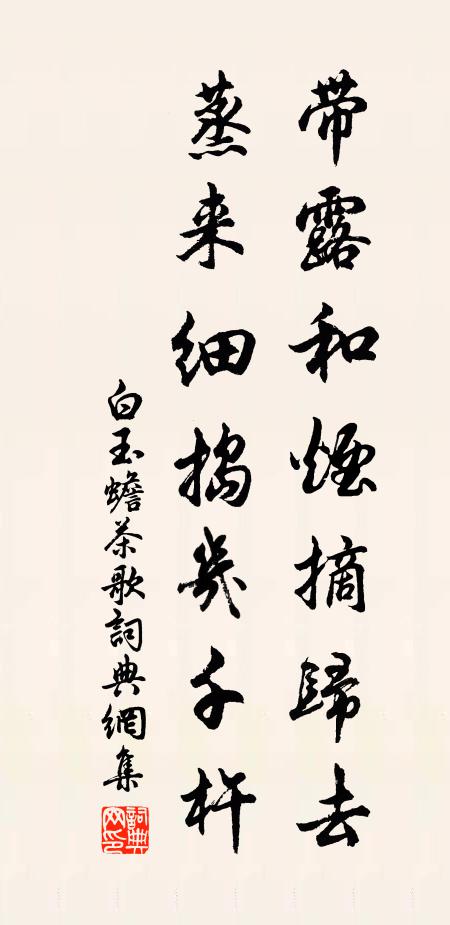 带露和煙摘歸去
蒸来细搗幾千杵
白玉蟾茶歌詞典網集
詞典网印